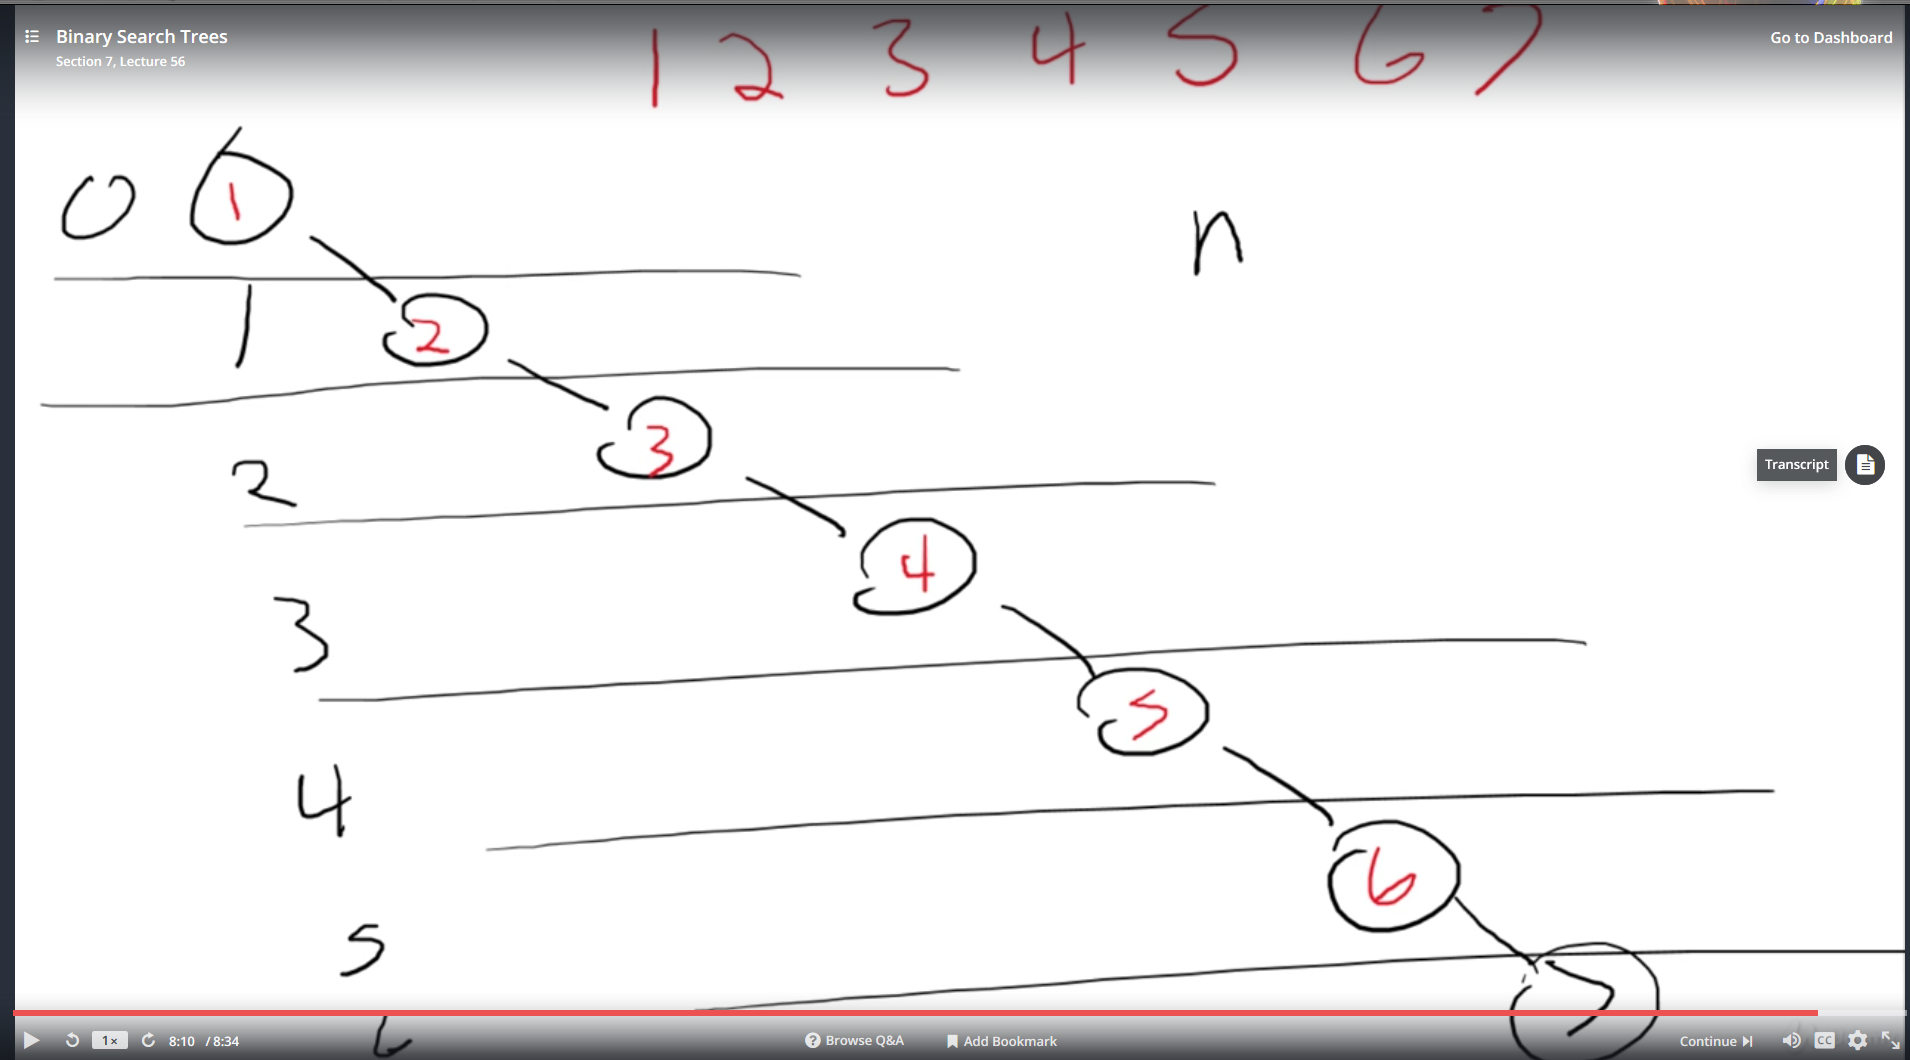 Binary Search Trees
Section 7, Lecture 56
Go to Dashboard
1 2 3 4 5 6 7
0 1
n
1 2
3
2
Transcript
4
3
5
4
6
5
7
6
1x 8:10 / 8:34
? Browse Q&A
Add Bookmark
Continue
CC